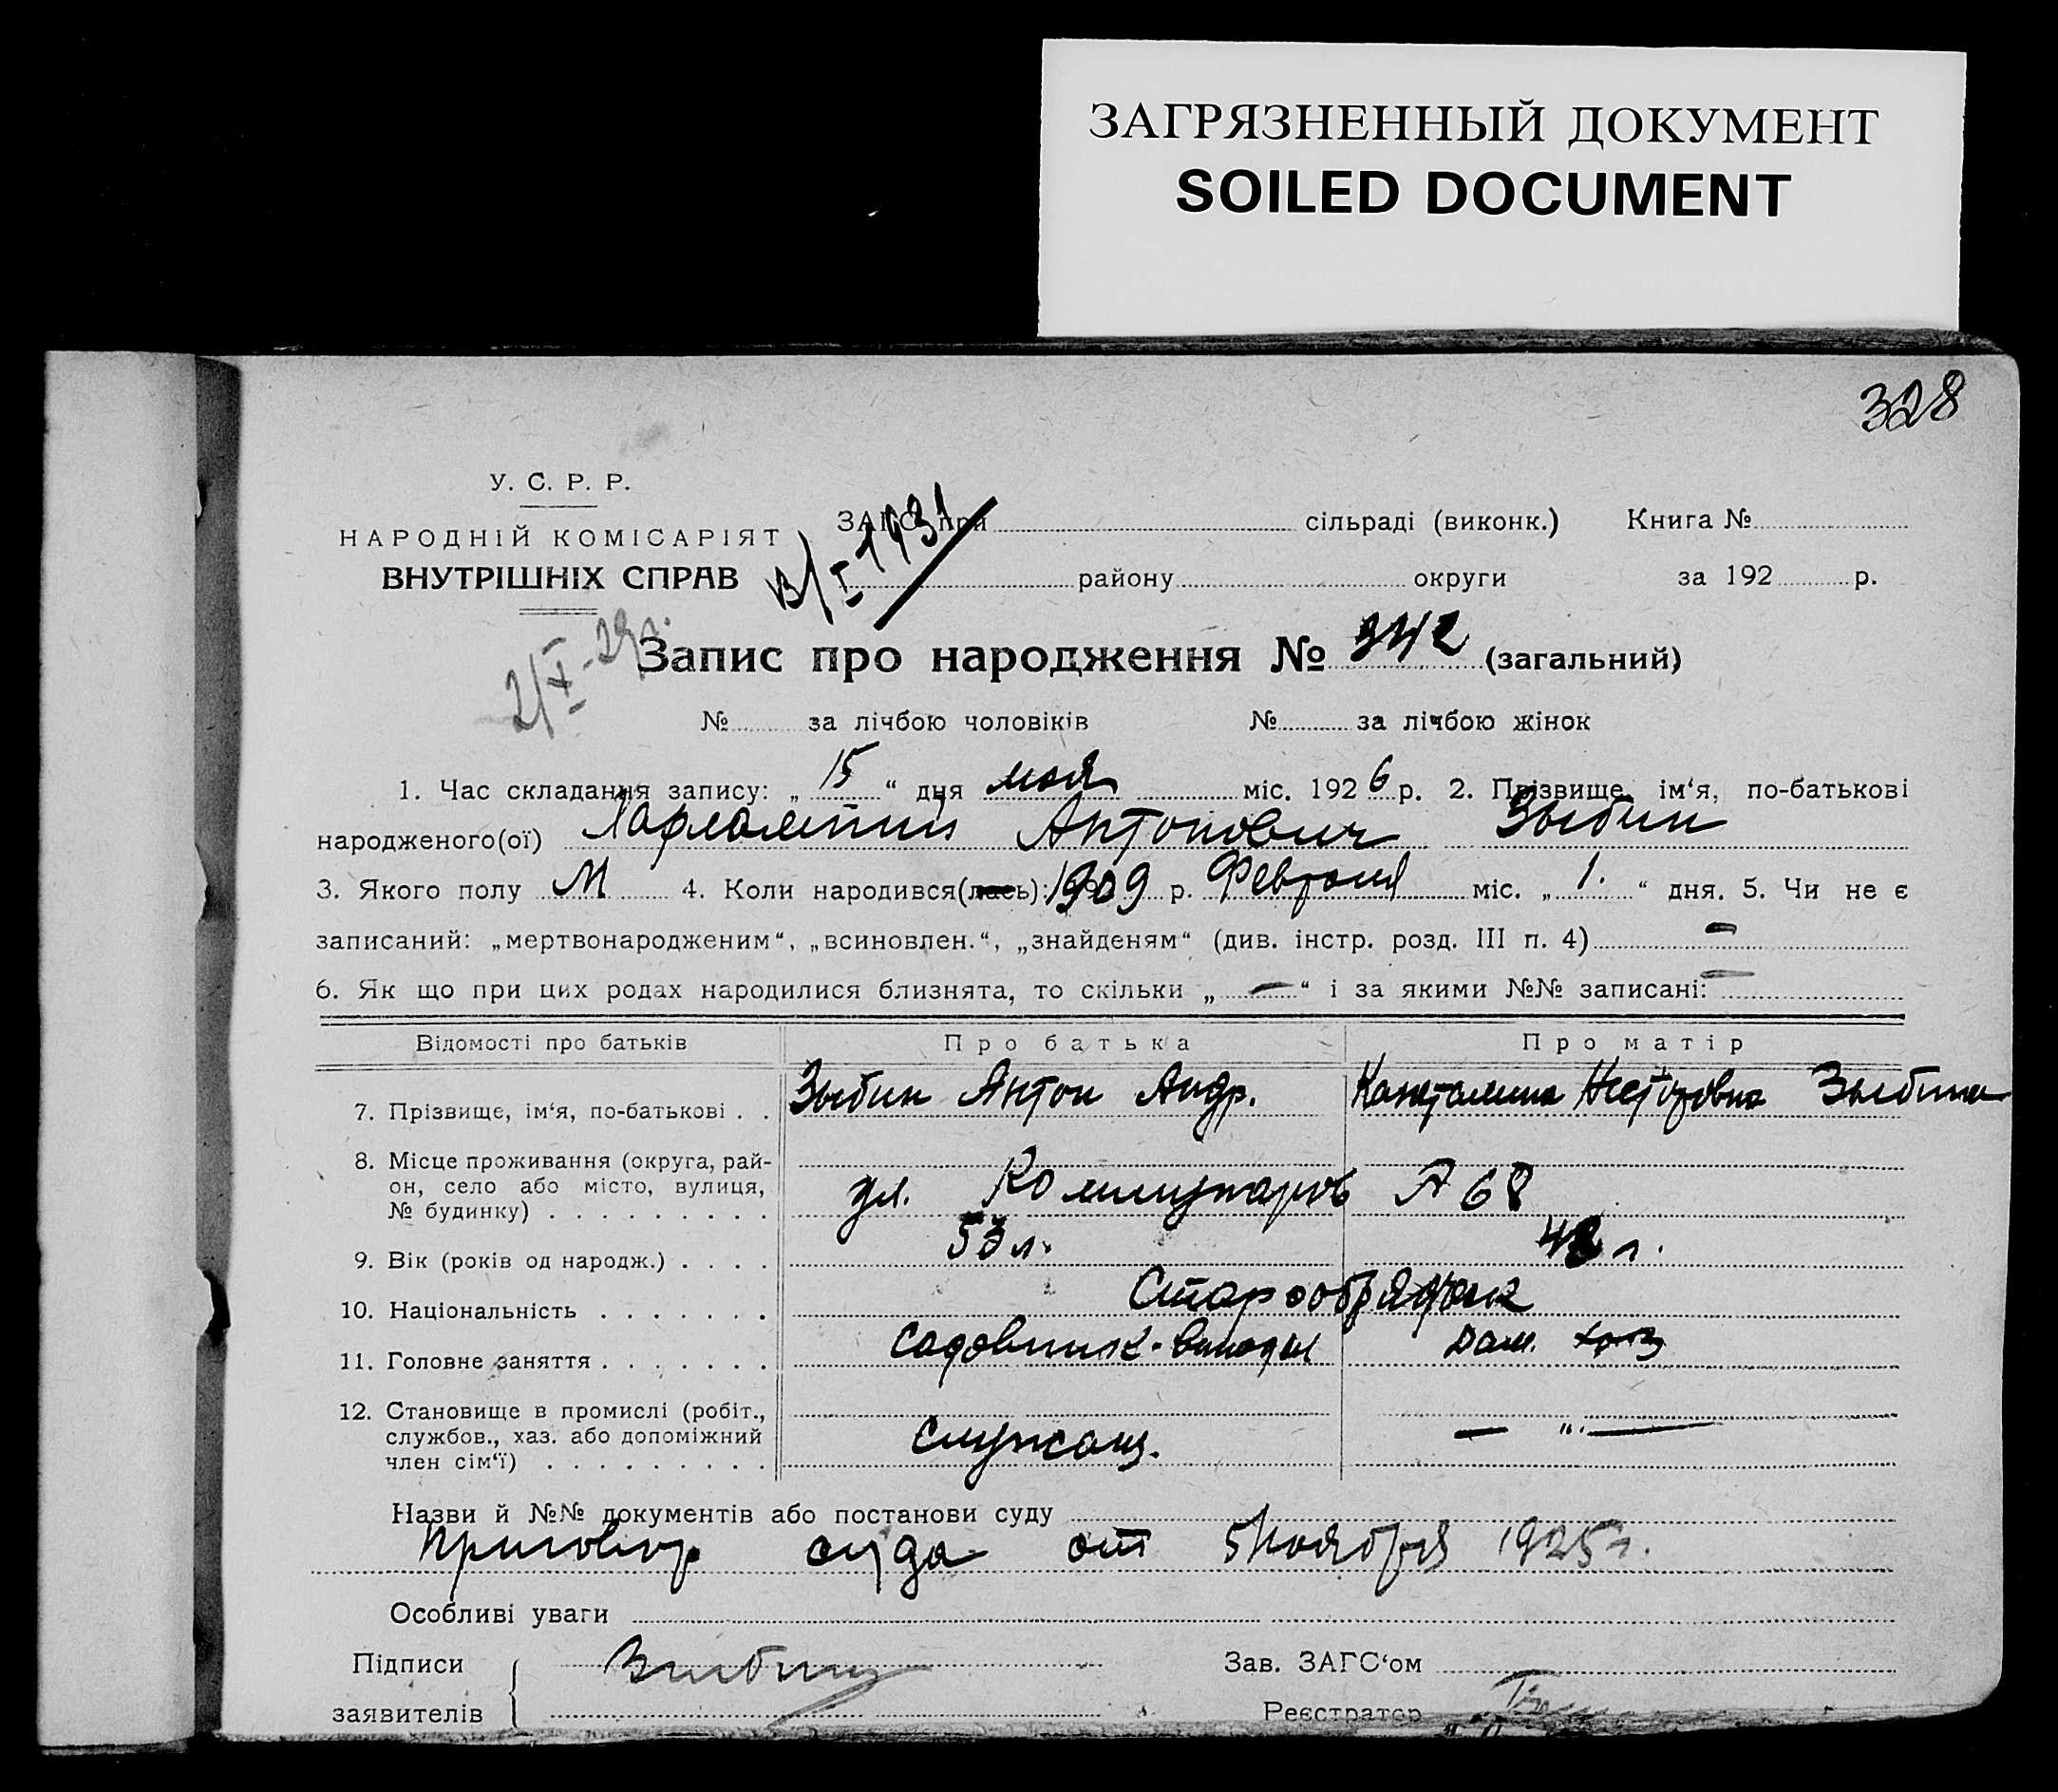 ЗАГРЯЗНЕННЫЙ ДОКУМЕНТ
SOILED DOCUMENT
328
У. С. Р. Р.
НАРОДНІЙ КОМІСАРІЯТ
ВНУТРІШНІХ СПРАВ
ЗАГС при сільраді (виконк.) Книга №
району округи за 192 р.
В/I 1931
2/X-29г.
Запис про народження № 342 (загальний)
№ за лічбою чоловіків № за лічбою жінок
1. Час складання запису: „ 15 “ дня мая міс. 1926 р. 2. Прізвище, ім‘я, по-батькові
народженого(ої) Харлампий Антонович Зыбин
3. Якого полу М 4. Коли народився(лась): 1909 р. Февраля міс. „ 1. “ дня. 5. Чи не є
записаний: „мертвонародженим“, „всиновлен.“, „знайденям“ (див. інстр. розд. III п. 4) —
6. Як що при цих родах народилися близнята, то скільки „ — “ і за якими №№ записані: —
Відомості про батьків Про батька Про матір
7. Прізвище, ім‘я, по-батькові . . Зыбин Антон Андр. Капетолина Несторовна Зыбина
8. Місце проживання (округа, рай-
он, село або місто, вулиця,
№ будинку) . . . . . . . . . ул. Коммунаров 68
9. Вік (років од народж.) . . . . 53 л. 48 л.
10. Національність . . . . . . . Старообрядцы
11. Головне заняття . . . . . . . Садовник-винодел Дом. хоз
12. Становище в промислі (робіт.,
службов., хаз. або допоміжний
член сім‘ї) . . . . . . . . . Служащ. — „ —
Назви й №№ документів або постанови суду
Приговор суда от 5 Ноября 1925 г.
Особливі уваги
Підписи Зыбин Зав. ЗАГС‘ом
заявителів Реєстратор